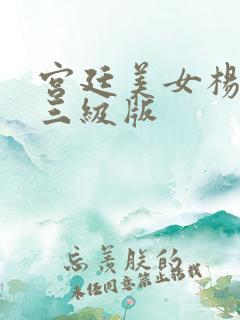 宫廷美女杨
三级版
忘羡朕的
未经同意禁止转载